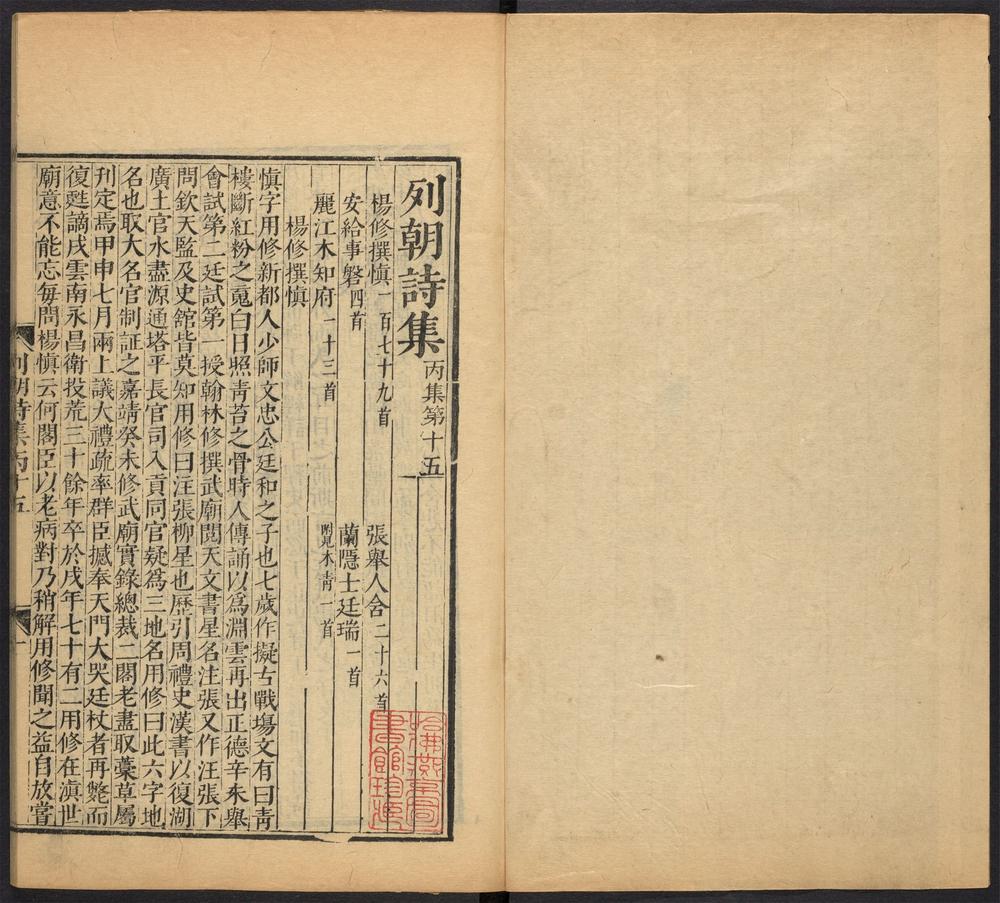 列朝詩集丙集第十五
楊修撰慎一百七十九首 張舉人含二十六首
安給事磐四首 蘭隱士廷瑞一首
麗江木知府一十三首 附見木靑一首
楊修撰慎
慎字用修新都人少師文忠公廷和之子也七歲作擬古戰場文有曰靑
樓斷紅粉之䰟白日照靑苔之骨時人傳誦以爲淵雲再出正德辛未舉
會試第二廷試第一授翰林修撰武廟閱天文書星名注張又作汪張下
問欽天監及史舘皆莫知用修曰注張柳星也歷引周禮史漢書以復湖
廣土官水盡源通塔平長官司入貢同官疑爲三地名用修曰此六字地
名也取大名官制証之嘉靖癸未修武廟實錄總裁二閣老盡取藁草屬
刋定焉甲申七月兩上議大禮疏率群臣撼奉天門大哭廷杖者再斃而
復甦謫戍雲南永昌衛投荒三十餘年卒於戍年七十有二用修在滇世
廟意不能忘每問楊慎云何閣臣以老病對乃稍解用修聞之益自放嘗
列朝詩集丙十五
一
哈佛燕京圖
書館珍藏